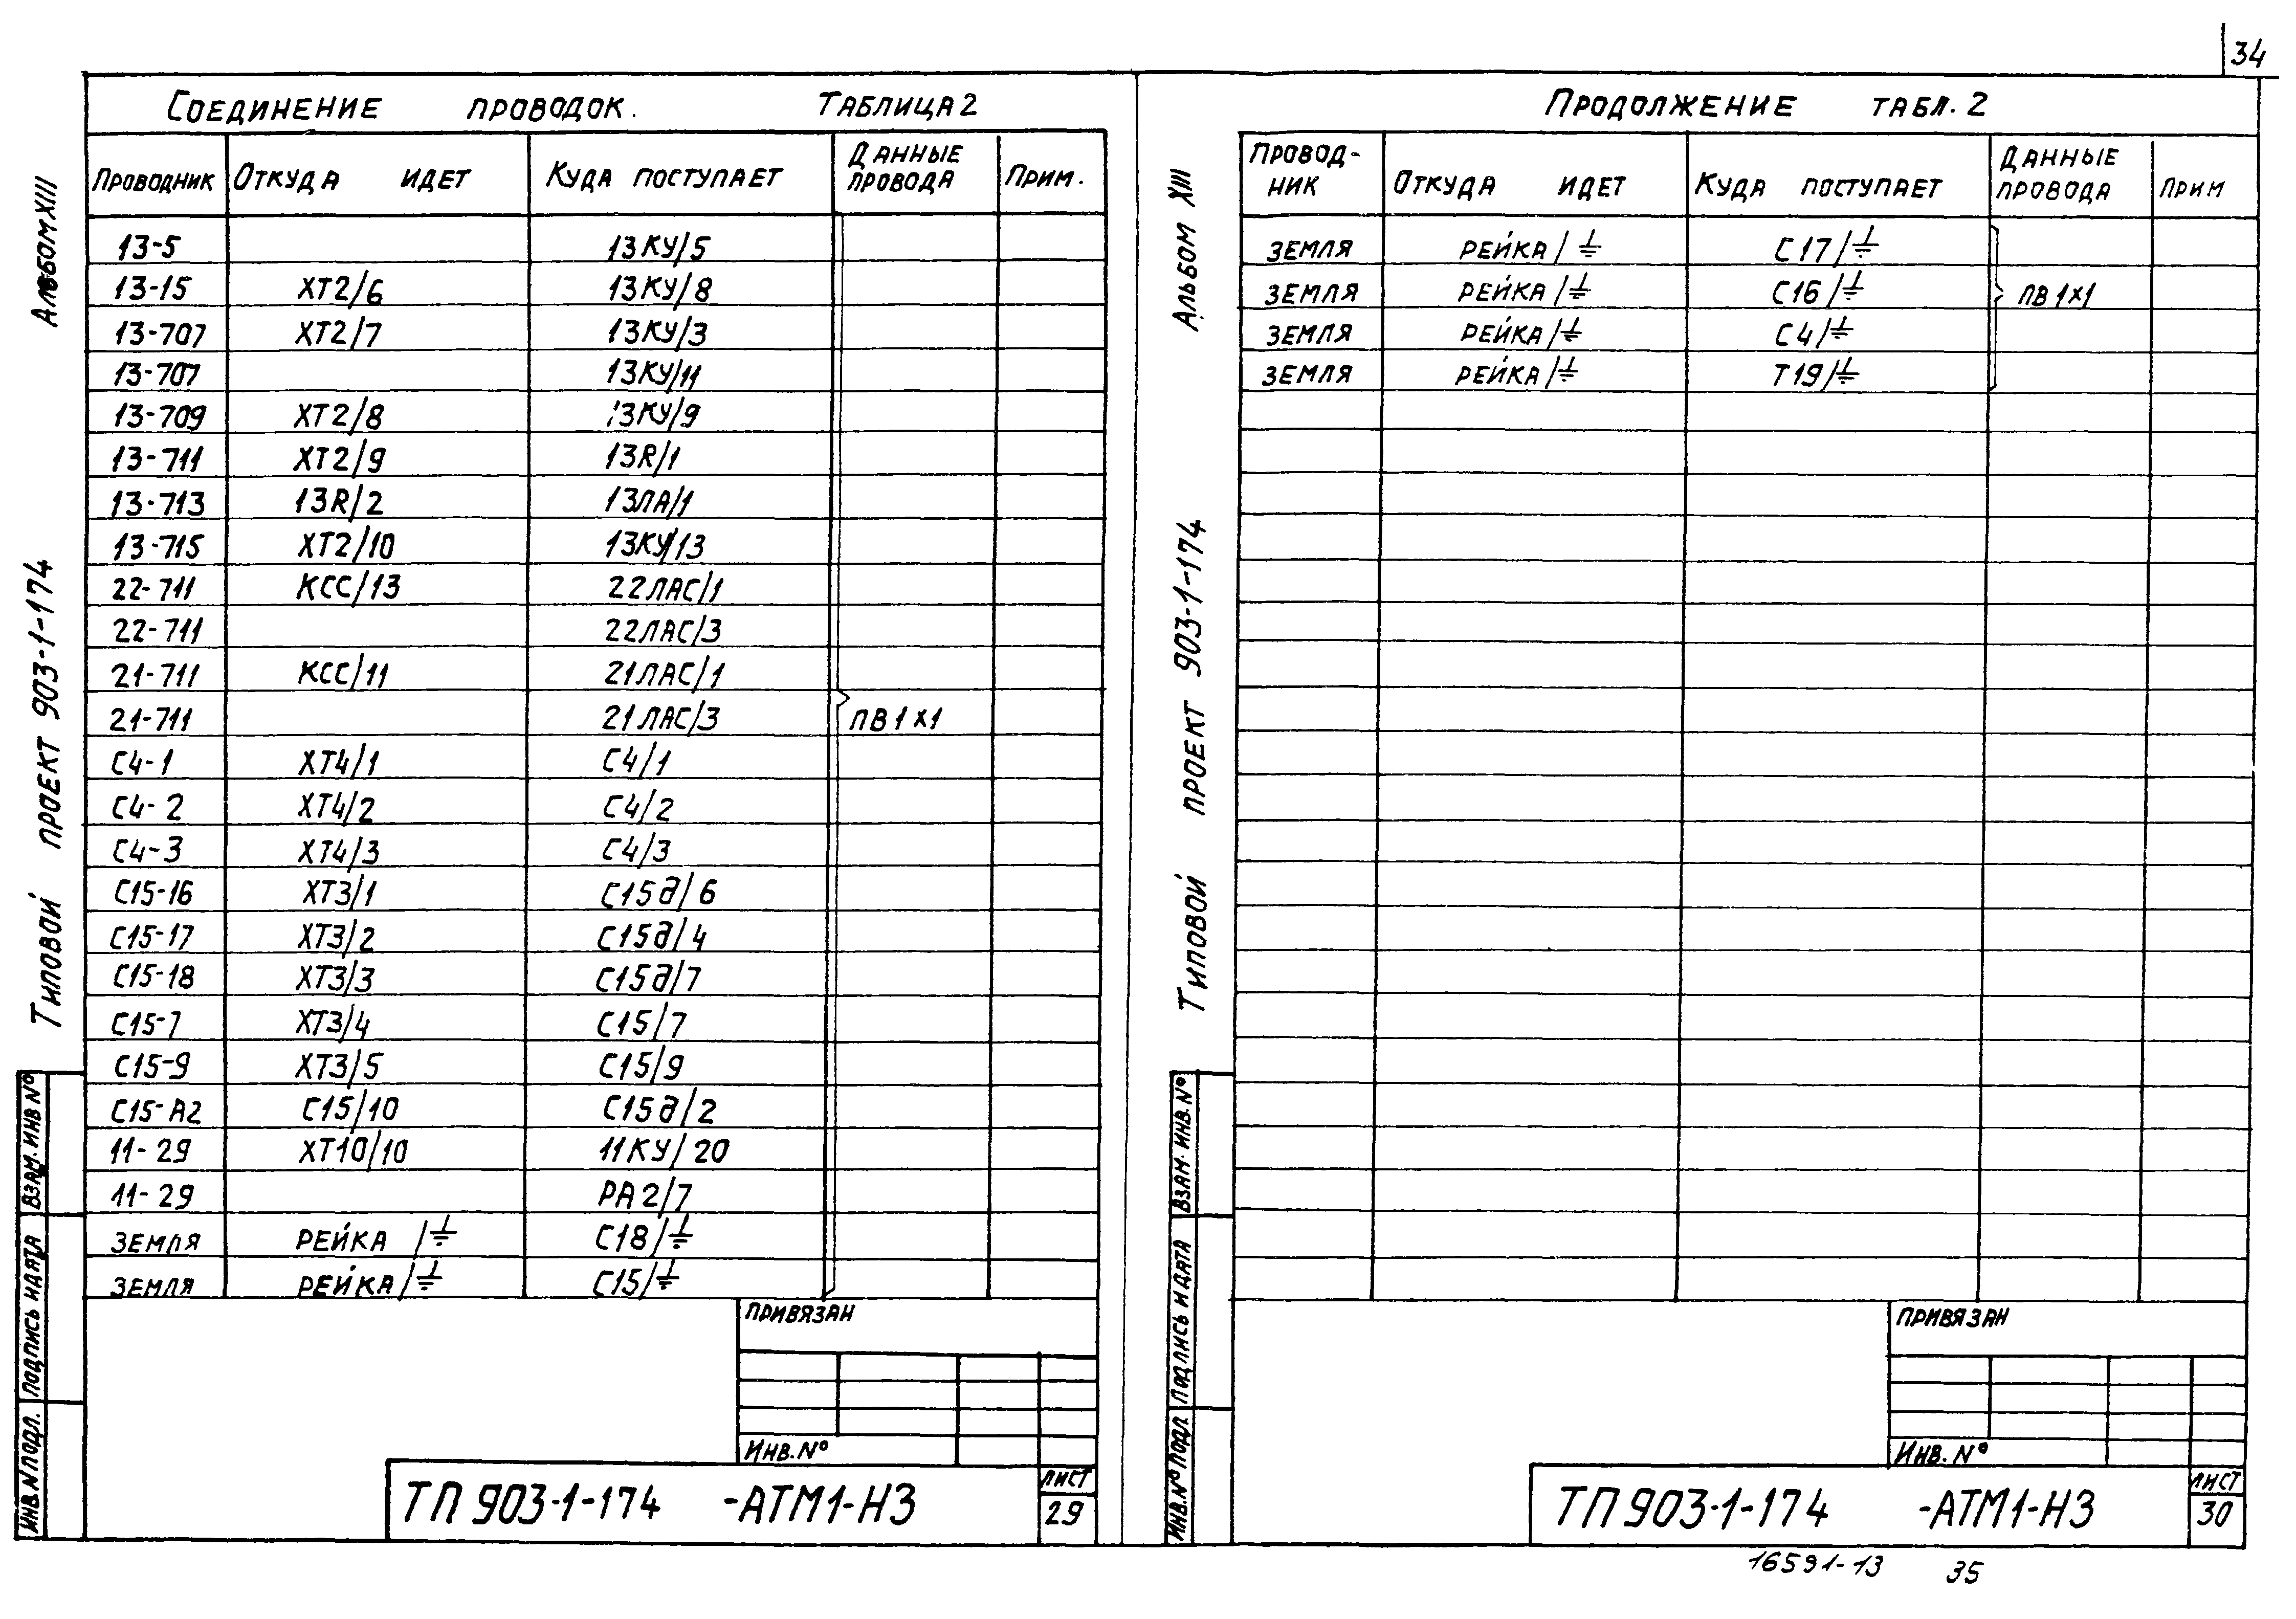 34
Соединение проводок. Таблица 2
Проводник Откуда идет Куда поступает Данные провода Прим.
13-5 13КУ/5
13-15 ХТ2/6 13КУ/8
13-707 ХТ2/7 13КУ/3
13-707 13КУ/11
13-709 ХТ2/8 13КУ/9
13-711 ХТ2/9 13R/1
13-713 13R/2 13ЛА/1
13-715 ХТ2/10 13КУ/13
22-711 КСС/13 22ЛАС/1
22-711 22ЛАС/3
21-711 КСС/11 21ЛАС/1
21-711 21ЛАС/3 ПВ1х1
С4-1 ХТ4/1 С4/1
С4-2 ХТ4/2 С4/2
С4-3 ХТ4/3 С4/3
С15-16 ХТ3/1 С15д/6
С15-17 ХТ3/2 С15д/4
С15-18 ХТ3/3 С15д/7
С15-7 ХТ3/4 С15/7
С15-9 ХТ3/5 С15/9
С15-А2 С15/10 С15д/2
11-29 ХТ10/10 11КУ/20
11-29 РА2/7
земля рейка/⏚ С18/⏚
земля рейка/⏚ С15/⏚
Привязан
Инв. №
ТП 903-1-174 -АТМ1-Н3
Лист
29
Альбом XIII
Типовой проект 903-1-174
Взам. инв №
Подпись и дата
Инв. № подл.
Продолжение табл. 2
Провод-ник Откуда идет Куда поступает Данные провода Прим
земля рейка/⏚ С17/⏚
земля рейка/⏚ С16/⏚ ПВ1х1
земля рейка/⏚ С4/⏚
земля рейка/⏚ Т19/⏚
Привязан
Инв. №
ТП 903-1-174 -АТМ1-Н3
Лист
30
Альбом XIII
Типовой проект 903-1-174
Взам. инв. №
Подпись и дата
Инв. № подл.
16591-13 35